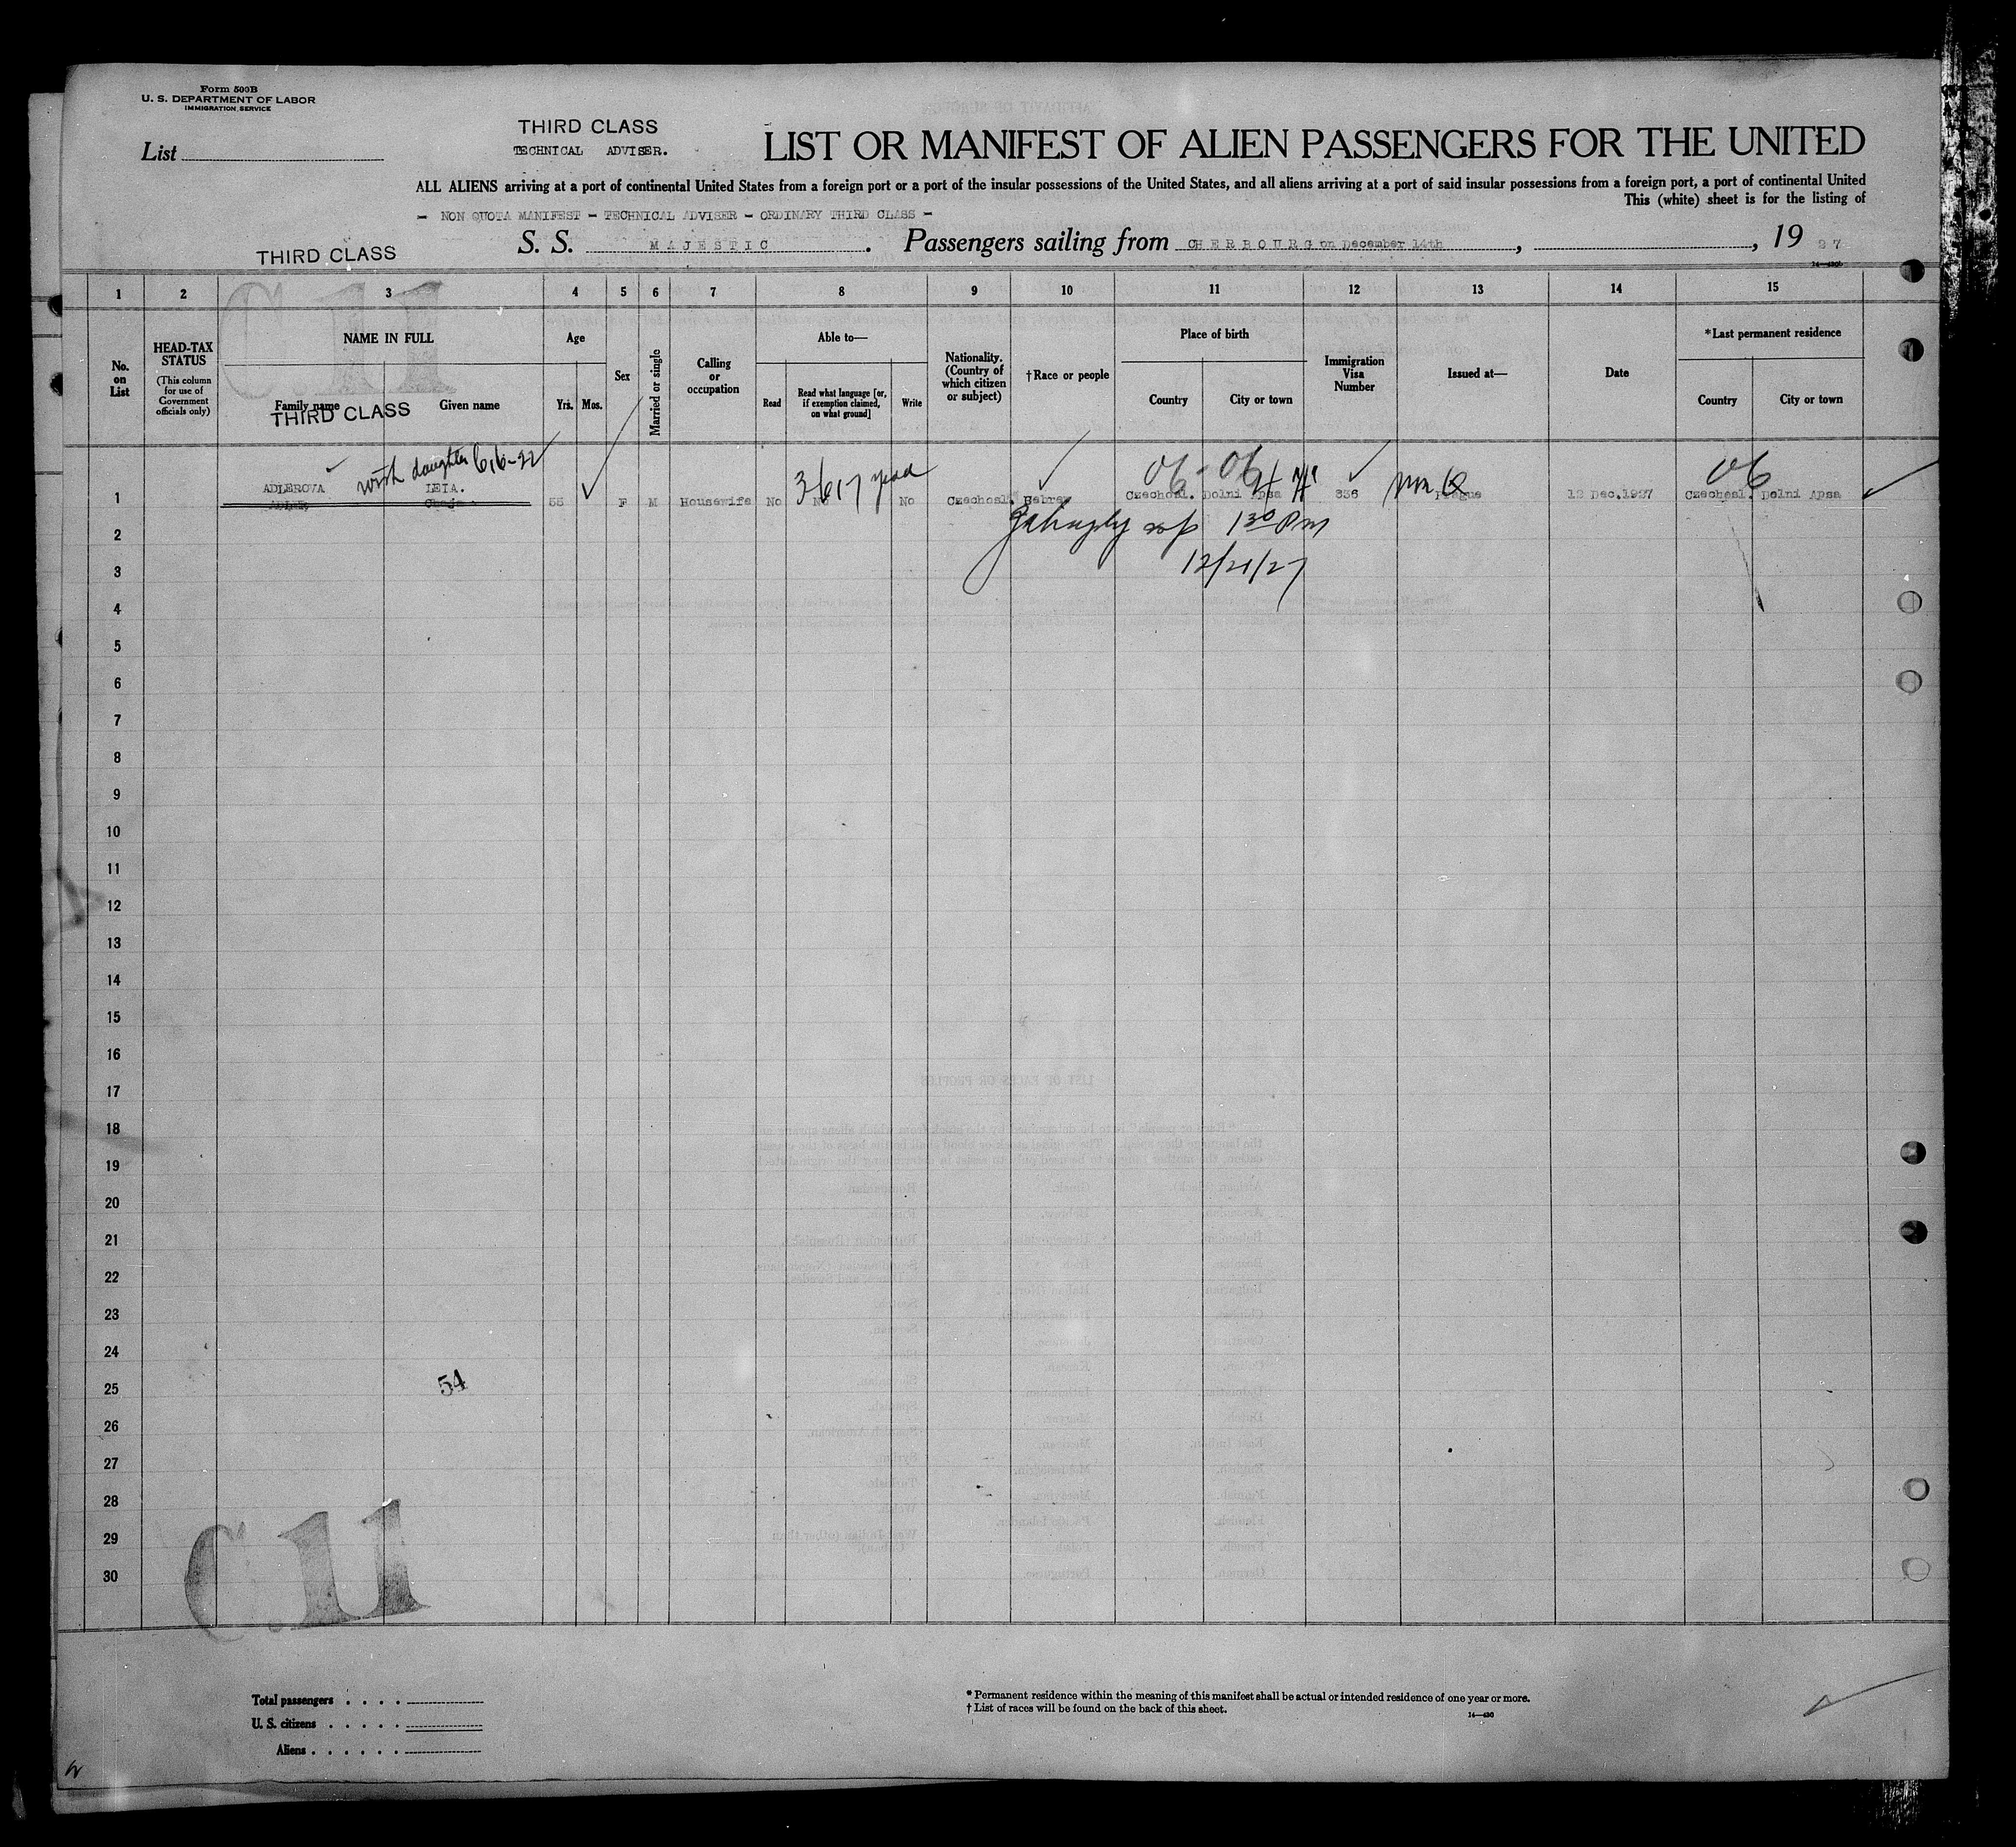 Form 500B
U. S. DEPARTMENT OF LABOR
IMMIGRATION SERVICE
List
THIRD CLASS
TECHNICAL ADVISER.
LIST OR MANIFEST OF ALIEN PASSENGERS FOR THE UNITED
ALL ALIENS arriving at a port of continental United States from a foreign port or a port of the insular possessions of the United States, and all aliens arriving at a port of said insular possessions from a foreign port, a port of continental United
This (white) sheet is for the listing of
- NON QUOTA MANIFEST - TECHNICAL ADVISER - ORDINARY THIRD CLASS -
THIRD CLASS
S. S. MAJESTIC. Passengers sailing from CHERBOURG on December 14th, , 19 27
1 2 3 4 5 6 7 8 9 10 11 12 13 14 15
C 11
No. on List
HEAD-TAX STATUS
(This column for use of Government officials only)
NAME IN FULL
Family name Given name
THIRD CLASS
Age
Yrs. Mos.
Sex
Married or single
Calling or occupation
Able to—
Read
Read what language [or, if exemption claimed, on what ground]
Write
Nationality. (Country of which citizen or subject)
†Race or people
Place of birth
Country City or town
Immigration Visa Number
Issued at—
Date
*Last permanent residence
Country City or town
with daughter 616-22
3617 06 - 06 06
1 ADLEROVA LEIA. 55 F M Housewife No No No Czechosl. Hebrew Czechosl. Dolni Apsa 336 Prague 12 Dec.1927 Czechosl. Dolni Apsa
ADLER,
1 30 Pm
2
12/21/27
3
4
5
6
7
8
9
10
11
12
13
14
15
16
17
LIST OF RACES OR PEOPLES
18
19
20
21
22
23
24
54
25
26
27
28
29
30
C.11
Total passengers . . . .
U. S. citizens . . . . .
Aliens . . . . . .
* Permanent residence within the meaning of this manifest shall be actual or intended residence of one year or more.
† List of races will be found on the back of this sheet.
14—430